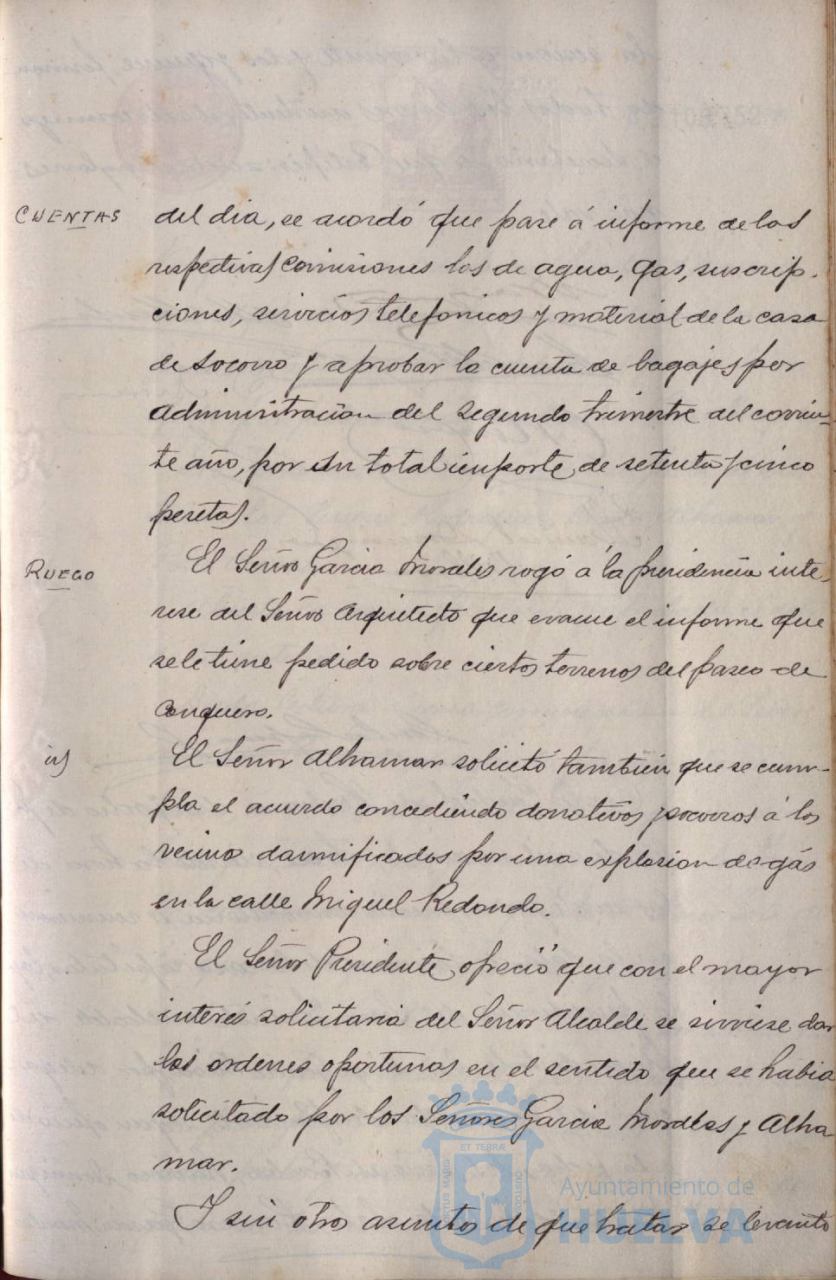 CUENTAS
del dia, se acordó que pase á informe de las
respectivas comisiones los de agua, gas, suscrip-
ciones, servicios telefonicos y material de la casa
de socorro y aprobar la cuenta de bagajes por
administracion del segundo trimestre del corrien-
te año, por un total importe de setenta y cinco
pesetas.
RUEGO
El Señor Garcia Morales rogó á la presidencia inte-
rese del Señor Arquitecto que evacue el informe que
se le tiene pedido sobre ciertos terrenos del paseo de
Conquero.
El Señor Alhamar solicitó tambien que se cum-
pla el acuerdo concediendo donativos y socorros á los
vecinos damnificados por una explosion de gás
en la calle Miguel Redondo.
El Señor Presidente ofreció que con el mayor
interés solicitaria del Señor Alcalde se sirviese dar
las ordenes oportunas en el sentido que se habia
solicitado por los Señores Garcia Morales y Alha
mar.
Y sin otros asuntos de que tratar se levantó
Ayuntamiento de
HUELVA